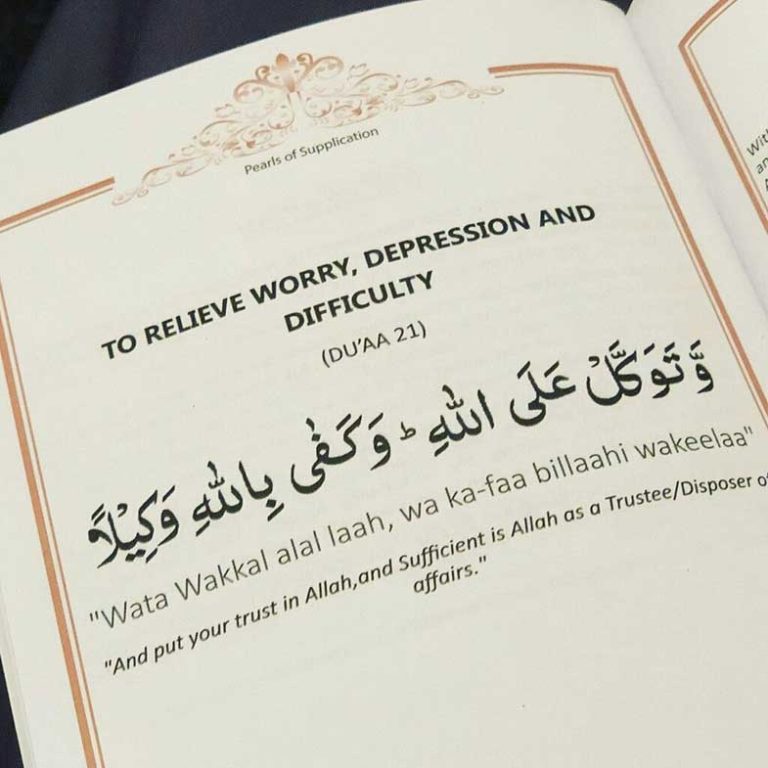 Pearls of Supplication
TO RELIEVE WORRY, DEPRESSION AND
DIFFICULTY
(DU'AA 21)
وَّ تَوَكَّلْ عَلَى اللّٰهِ ؕ وَ كَفٰى بِاللّٰهِ وَكِيْلًا
"Wata Wakkal alal laah, wa ka-faa billaahi wakeelaa"
"And put your trust in Allah,and Sufficient is Allah as a Trustee/Disposer of
affairs."